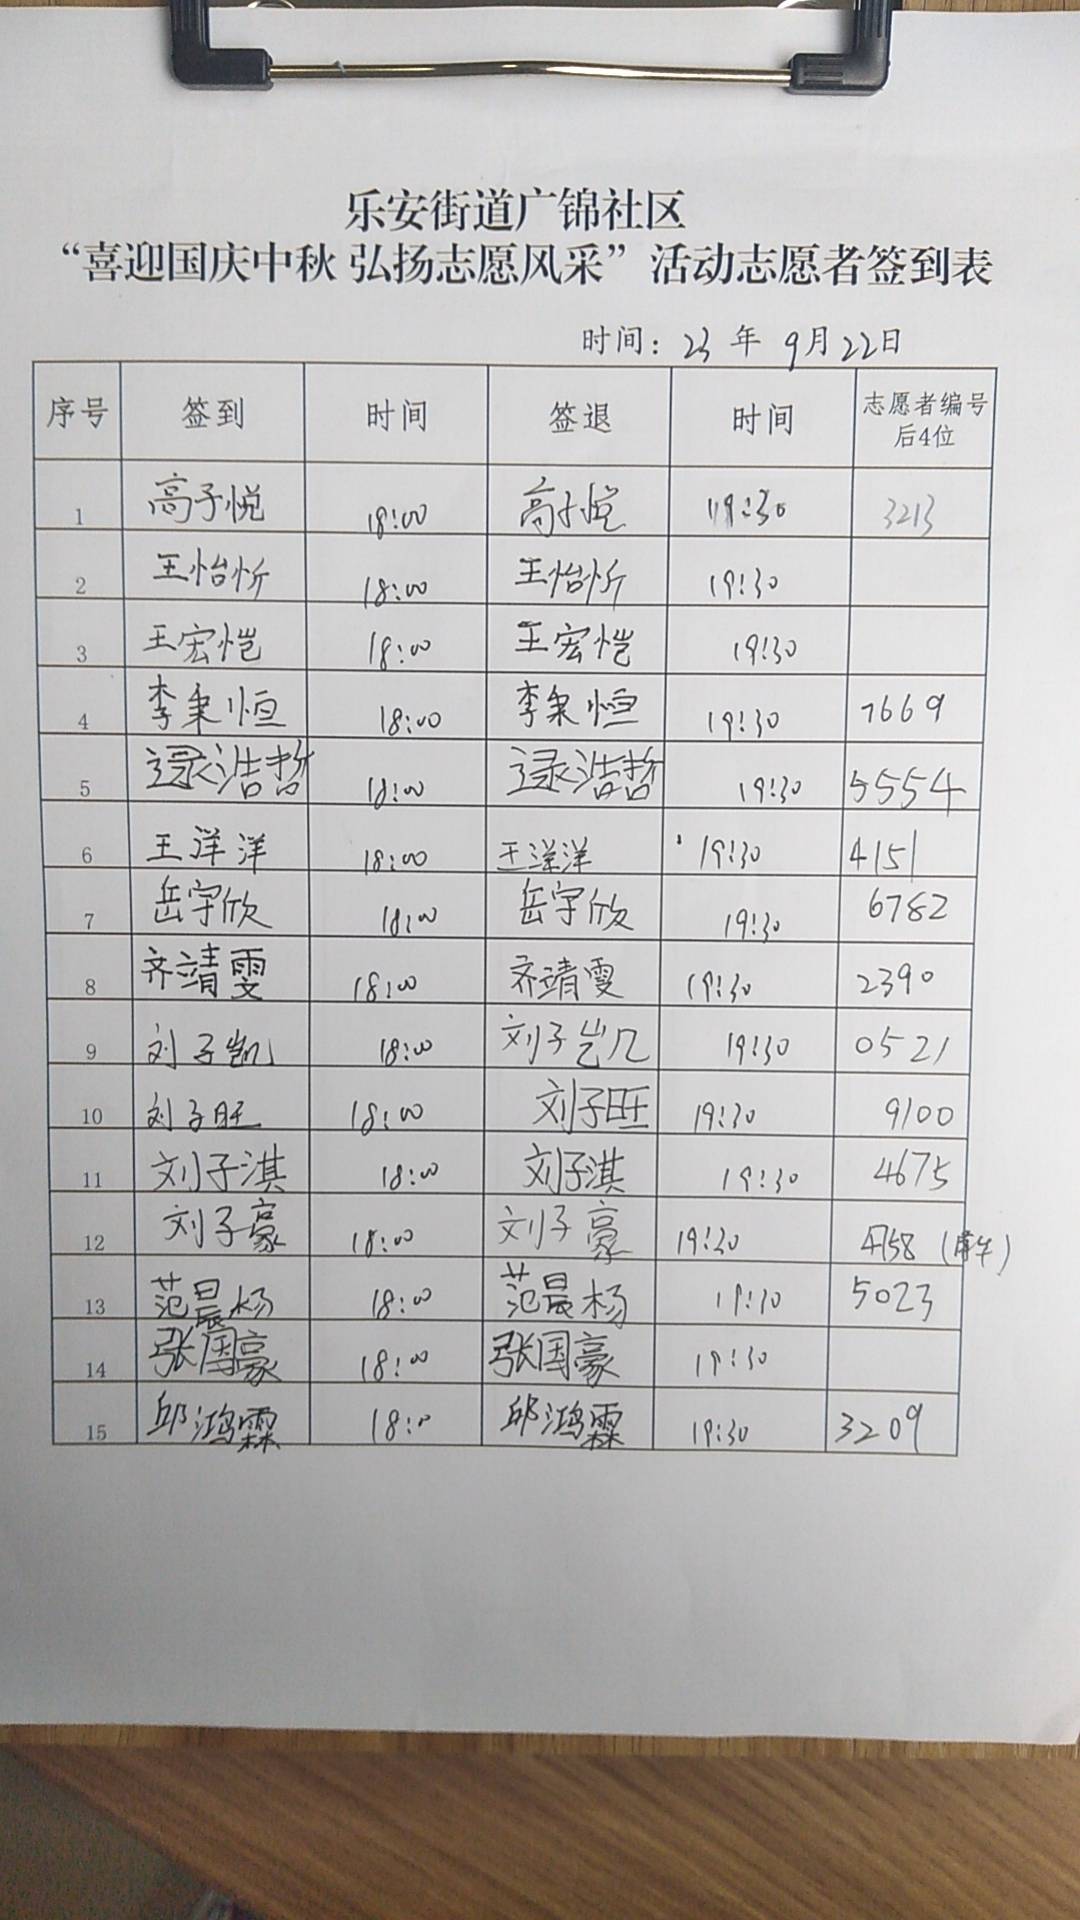 乐安街道广锦社区
“喜迎国庆中秋 弘扬志愿风采”活动志愿者签到表
时间：23 年 9月22日
序号 签到 时间 签退 时间 志愿者编号后4位
1 高子悦 18:00 高子悦 19:30 3213
2 王怡忻 18:00 王怡忻 19:30
3 王宏恺 18:00 王宏恺 19:30
4 李秉恒 18:00 李秉恒 19:30 7669
5 逯浩哲 18:00 逯浩哲 19:30 5554
6 王洋洋 18:00 王洋洋 19:30 4151
7 岳宇欣 18:00 岳宇欣 19:30 6782
8 齐靖雯 18:00 齐靖雯 19:30 2390
9 刘子凯 18:00 刘子凯 19:30 0521
10 刘子旺 18:00 刘子旺 19:30 9100
11 刘子淇 18:00 刘子淇 19:30 4675
12 刘子豪 18:00 刘子豪 19:30 4758
13 范晨杨 18:00 范晨杨 19:30 5023
14 张国豪 18:00 张国豪 19:30
15 邱鸿霖 18:0 邱鸿霖 19:30 3209